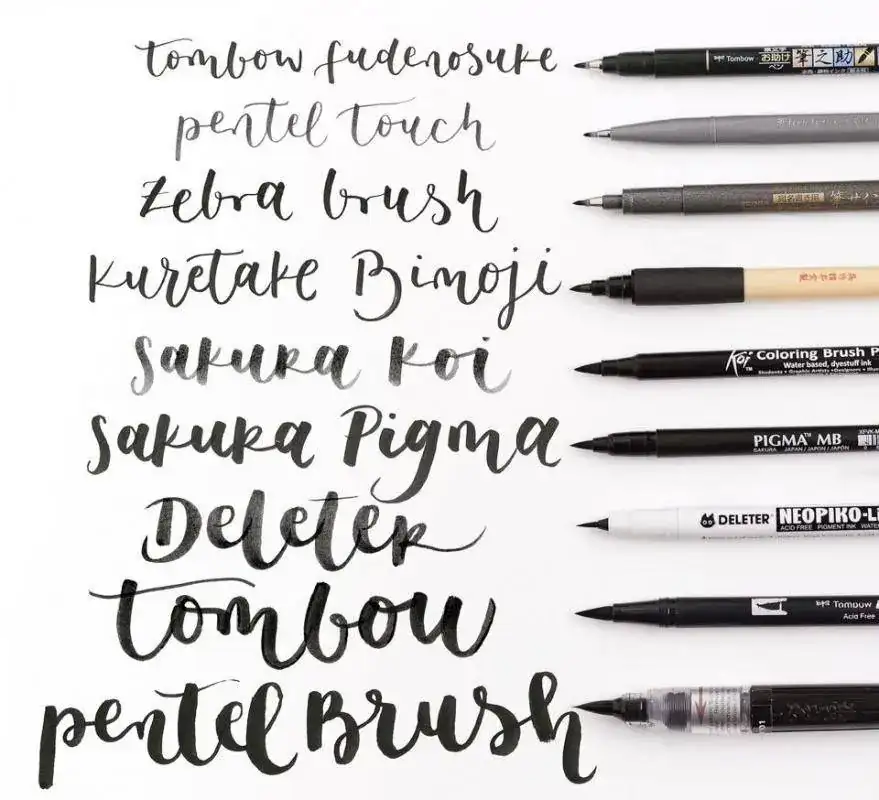 tombow fudenosuke
Tombow お助け 筆之助
ペン
pentel touch
zebra brush
kuretake Bimoji
sakura koi
Koi™ Coloring Brush P
Water based, dyestuff ink
sakura Pigma
PIGMA™ MB
SAKURA JAPAN/JAPON/JAPÓN
Deleter
DELETER NEOPIKO-Li
ACID FREE PIGMENT INK WATE
tombow
Tombow
Acid Free
pentel Brush